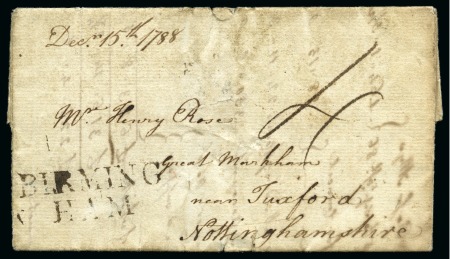 Decr. 15th. 1788
Mr. Henry Rose
4
Great Markham
near Tuxford
Nottinghamshire
BIRMING
HAM